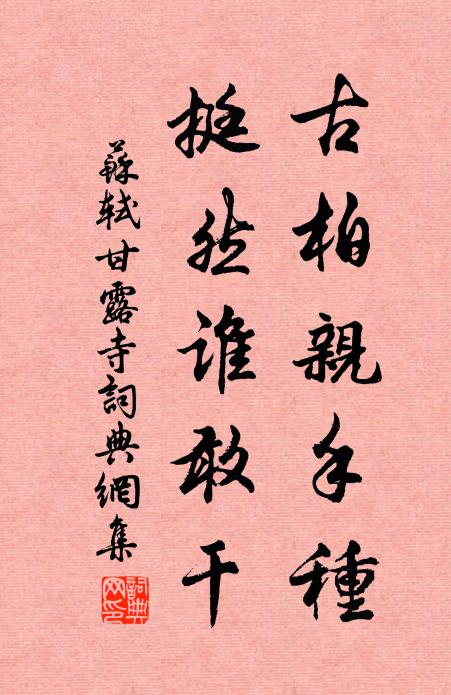 古柏親手種
挺然誰敢干
蘇軾甘露寺詞典網集